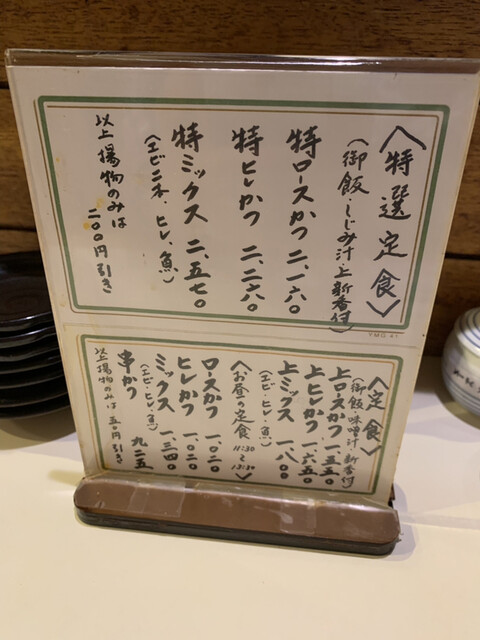 〈特選定食〉
(御飯・しじみ汁・上新香付)
特ロースかつ 二、一六〇
特ヒレかつ 二、二六〇
特ミックス 二、五七〇
(エビ二本、ヒレ、魚)
以上揚物のみは
二〇〇円引き
YMG 41
〈定食〉
(御飯・味噌汁・新香付)
上ロースかつ 一、五五〇
上ヒレかつ 一、六五〇
上ミックス 一、八〇〇
(エビ・ヒレ・魚)
〈お昼の定食 11:30〜13:30
ロースかつ 一、〇二〇
ヒレかつ 一、〇二〇
ミックス 一、三四〇
(エビ・ヒレ・魚)
串かつ 九二五
以上揚物のみは 五〇円引き